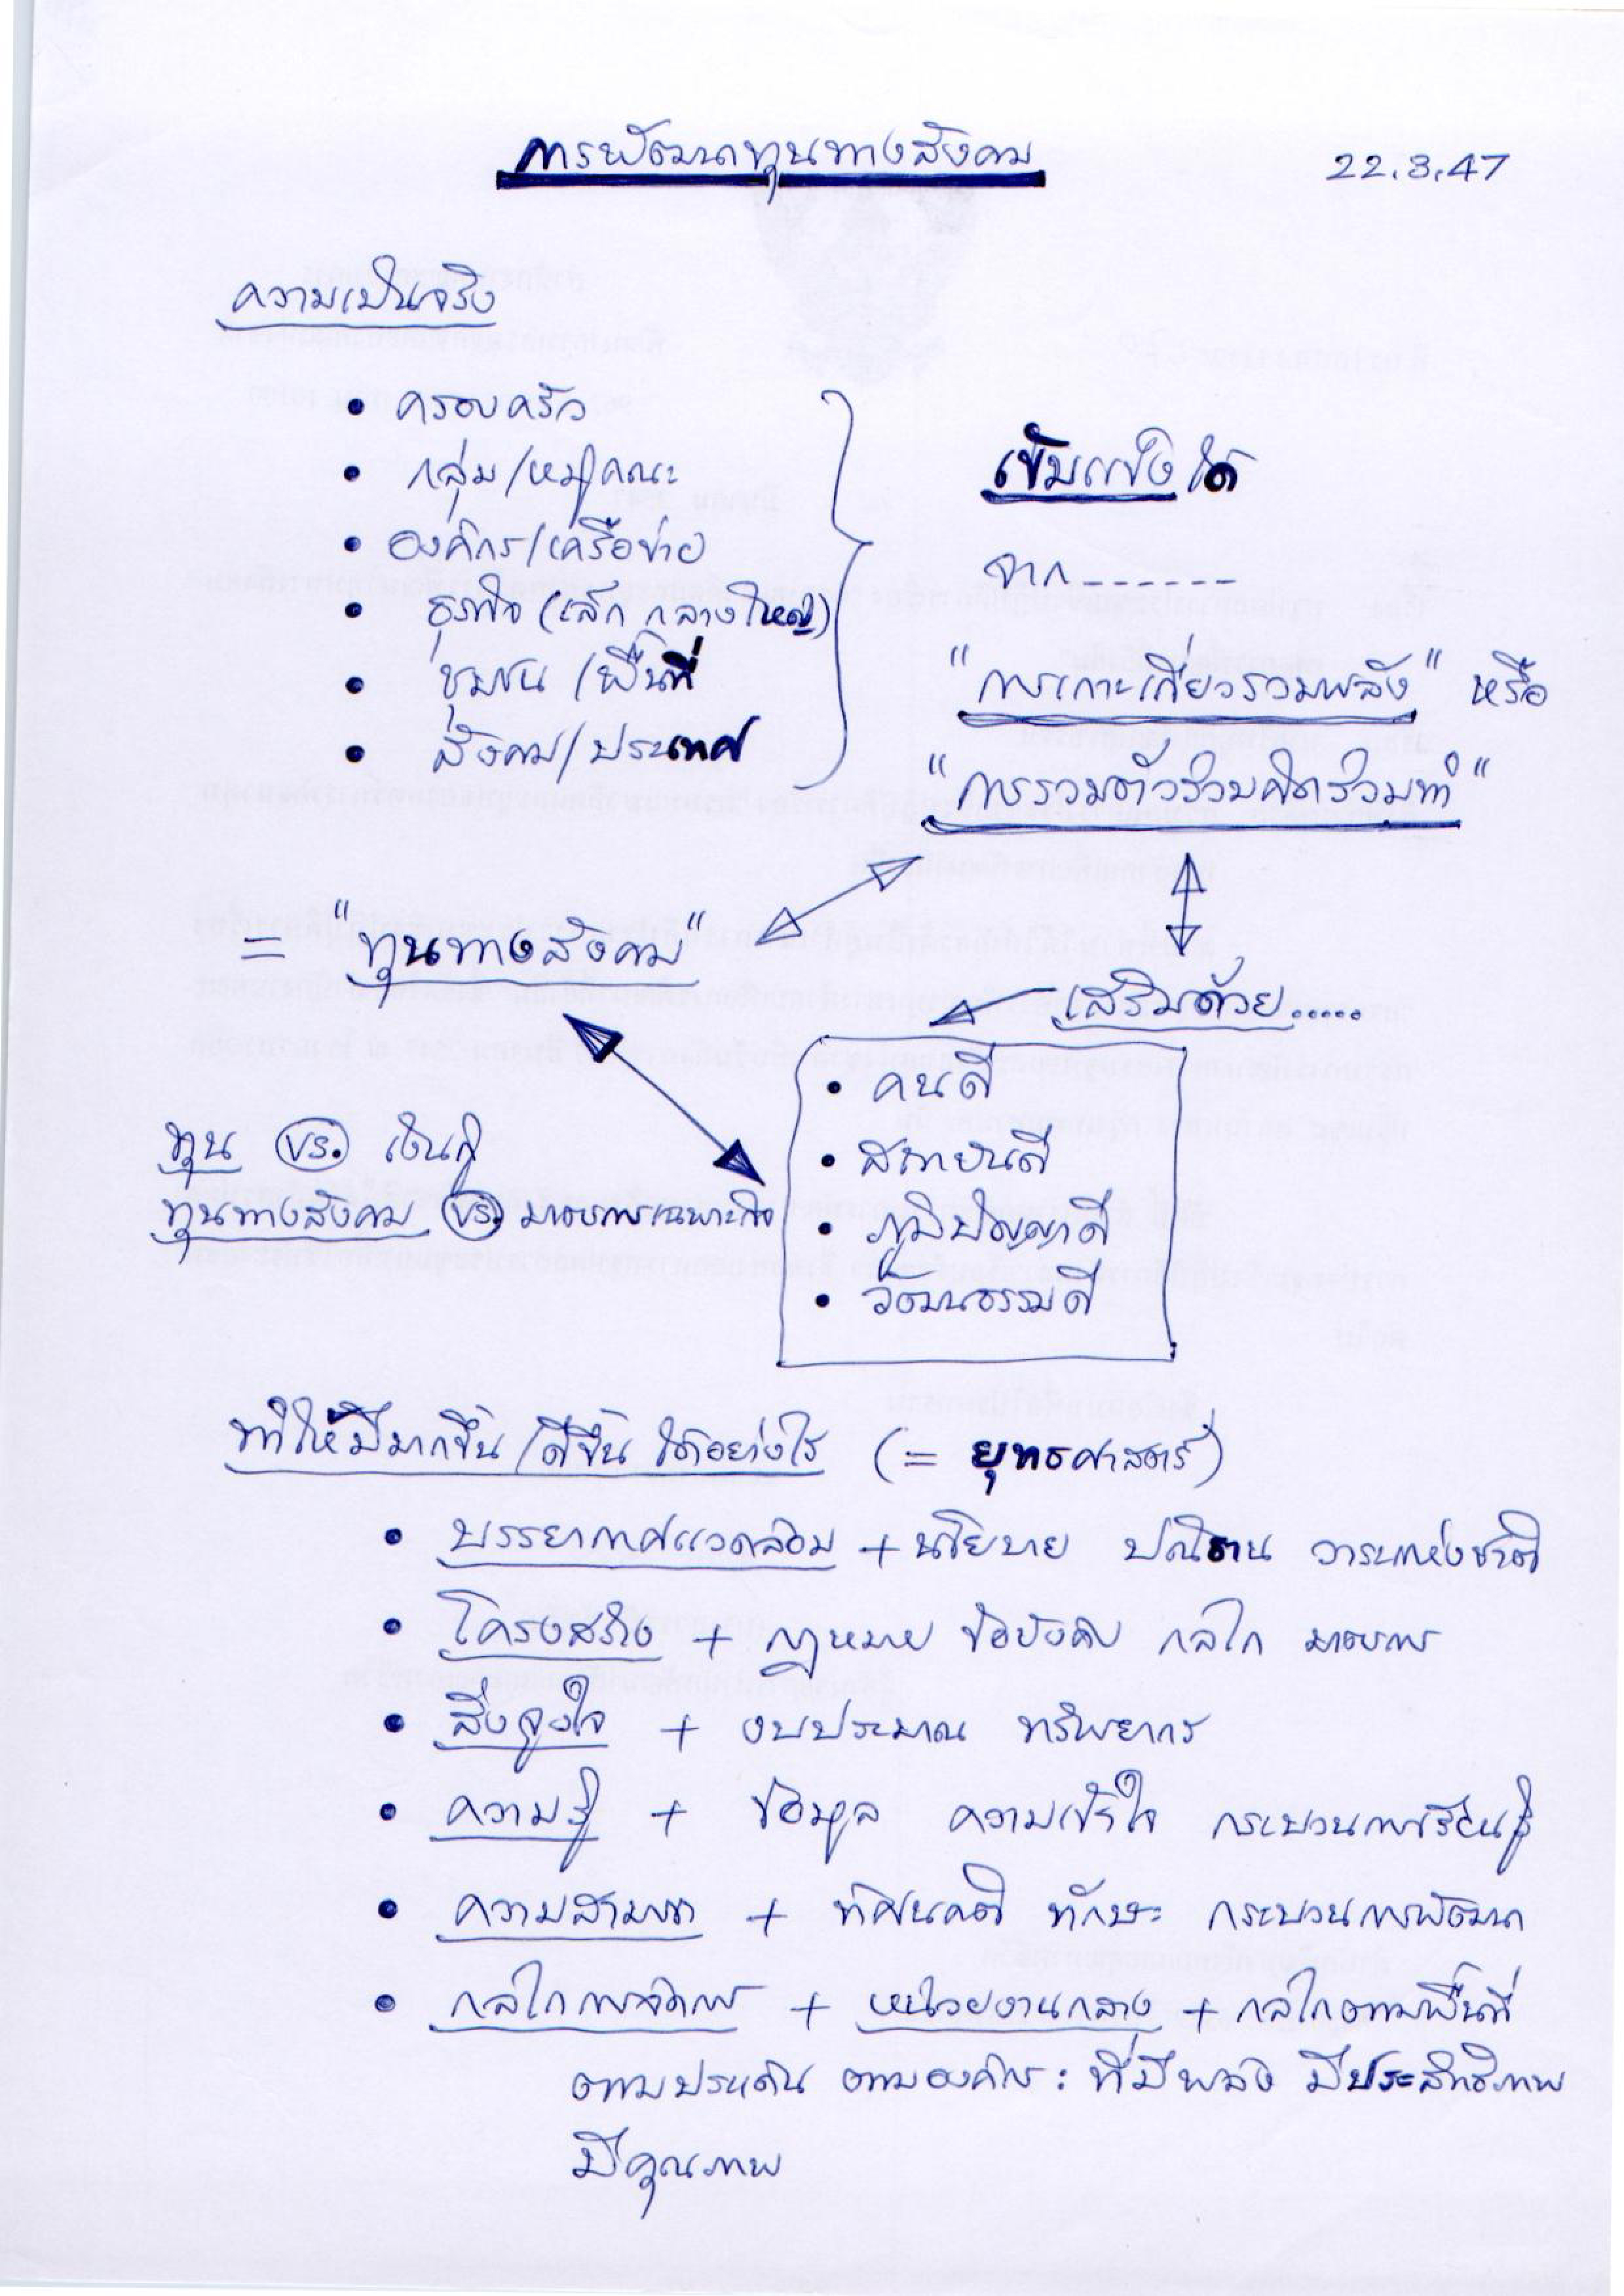 การพัฒนาทุนทางสังคม
22.3.47
ความเป็นจริง
• ครอบครัว
• กลุ่ม/หมู่คณะ
• องค์กร/เครือข่าย
• ธุรกิจ (เล็ก กลาง ใหญ่)
• ชุมชน/พื้นที่
• สังคม/ประเทศ
เข้มแข็งได้
จาก------
"การเกาะเกี่ยวรวมพลัง" หรือ
"การรวมตัวร่วมคิดร่วมทำ"
= "ทุนทางสังคม"
เสริมด้วย.....
• คนดี
• สถาบันดี
• ภูมิปัญญาดี
• วัฒนธรรมดี
ทุน vs. เงินกู้
ทุนทางสังคม vs. มาตรการเฉพาะกิจ
ทำให้มีมากขึ้น/ดีขึ้น ได้อย่างไร (= ยุทธศาสตร์)
• บรรยากาศแวดล้อม + นโยบาย ปณิธาน วาระแห่งชาติ
• โครงสร้าง + กฎหมาย ข้อบังคับ กลไก มาตรการ
• สิ่งจูงใจ + งบประมาณ ทรัพยากร
• ความรู้ + ข้อมูล ความเข้าใจ กระบวนการเรียนรู้
• ความสามารถ + ทัศนคติ ทักษะ กระบวนการพัฒนา
• กลไกการจัดการ + หน่วยงานกลาง + กลไกตามพื้นที่
ตามประเด็น ตามองค์กร : ที่มีพลัง มีประสิทธิภาพ
มีคุณภาพ